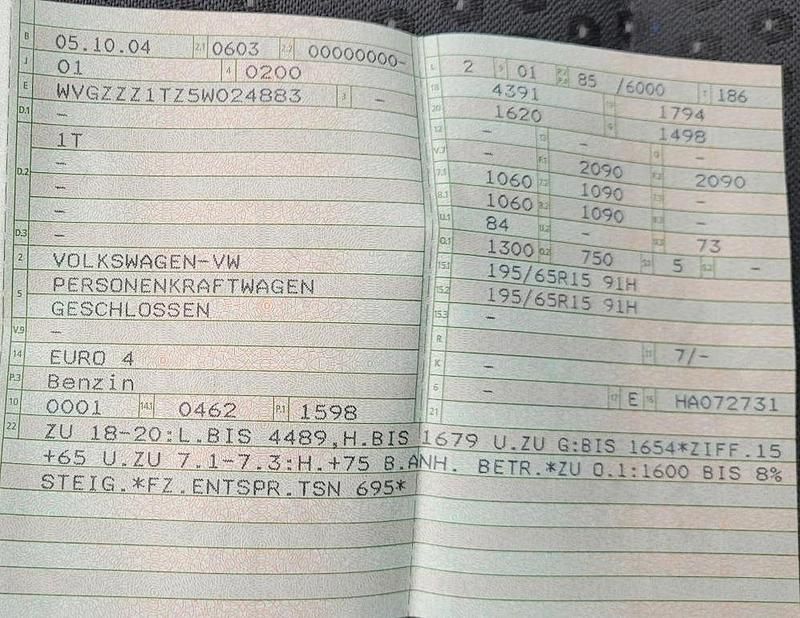 B 05.10.04 2.1 0603 2.2 00000000-
J 01 4 0200
E WVGZZZ1TZ5W024883 3 -
D.1 -
1T
D.2 -
-
-
D.3 -
2 VOLKSWAGEN-VW
5 PERSONENKRAFTWAGEN
GESCHLOSSEN
V.9 -
14 EURO 4
P.3 Benzin
10 0001 14.1 0462 P.1 1598
L 2 9 01 85 /6000 T 186
18 4391 1794
20 1620 G 1498
12 - 13 - Q -
V.7 - F.1 2090 F.2 2090
7.1 1060 7.2 1090 7.3 -
8.1 1060 8.2 1090 8.3 -
U.1 84 U.2 - U.3 73
O.1 1300 O.2 750 S.1 5 S.2 -
15.1 195/65R15 91H
15.2 195/65R15 91H
15.3 -
R 11 7/-
K -
6 - 17 E 16 HA072731
21
22 ZU 18-20:L.BIS 4489,H.BIS 1679 U.ZU G:BIS 1654*ZIFF.15
+65 U.ZU 7.1-7.3:H.+75 B.ANH. BETR.*ZU O.1:1600 BIS 8%
STEIG.*FZ.ENTSPR.TSN 695*